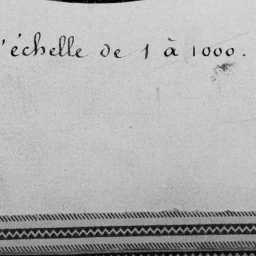 'échelle de 1 à 1000.